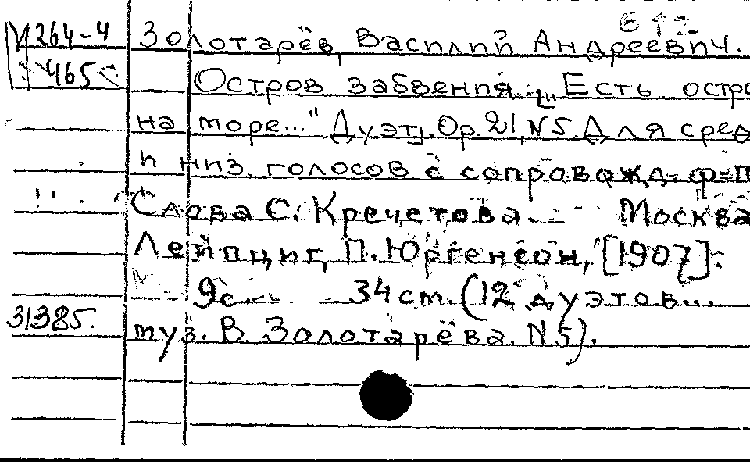 М 264-4
465
612
Золотарёв, Василий Андреевич.
Остров забвения. „Есть остро
на море..." Дуэт. Op. 21, N5. Для сред
и низ. голосов с сопровожд. ф=п
Слова С. Кречетова. Москва
Лейпциг, П. Юргенсон, [1907].
9с. 34 cm. (12 дуэтов...
31385.
муз. В. Золотарёва. N5).